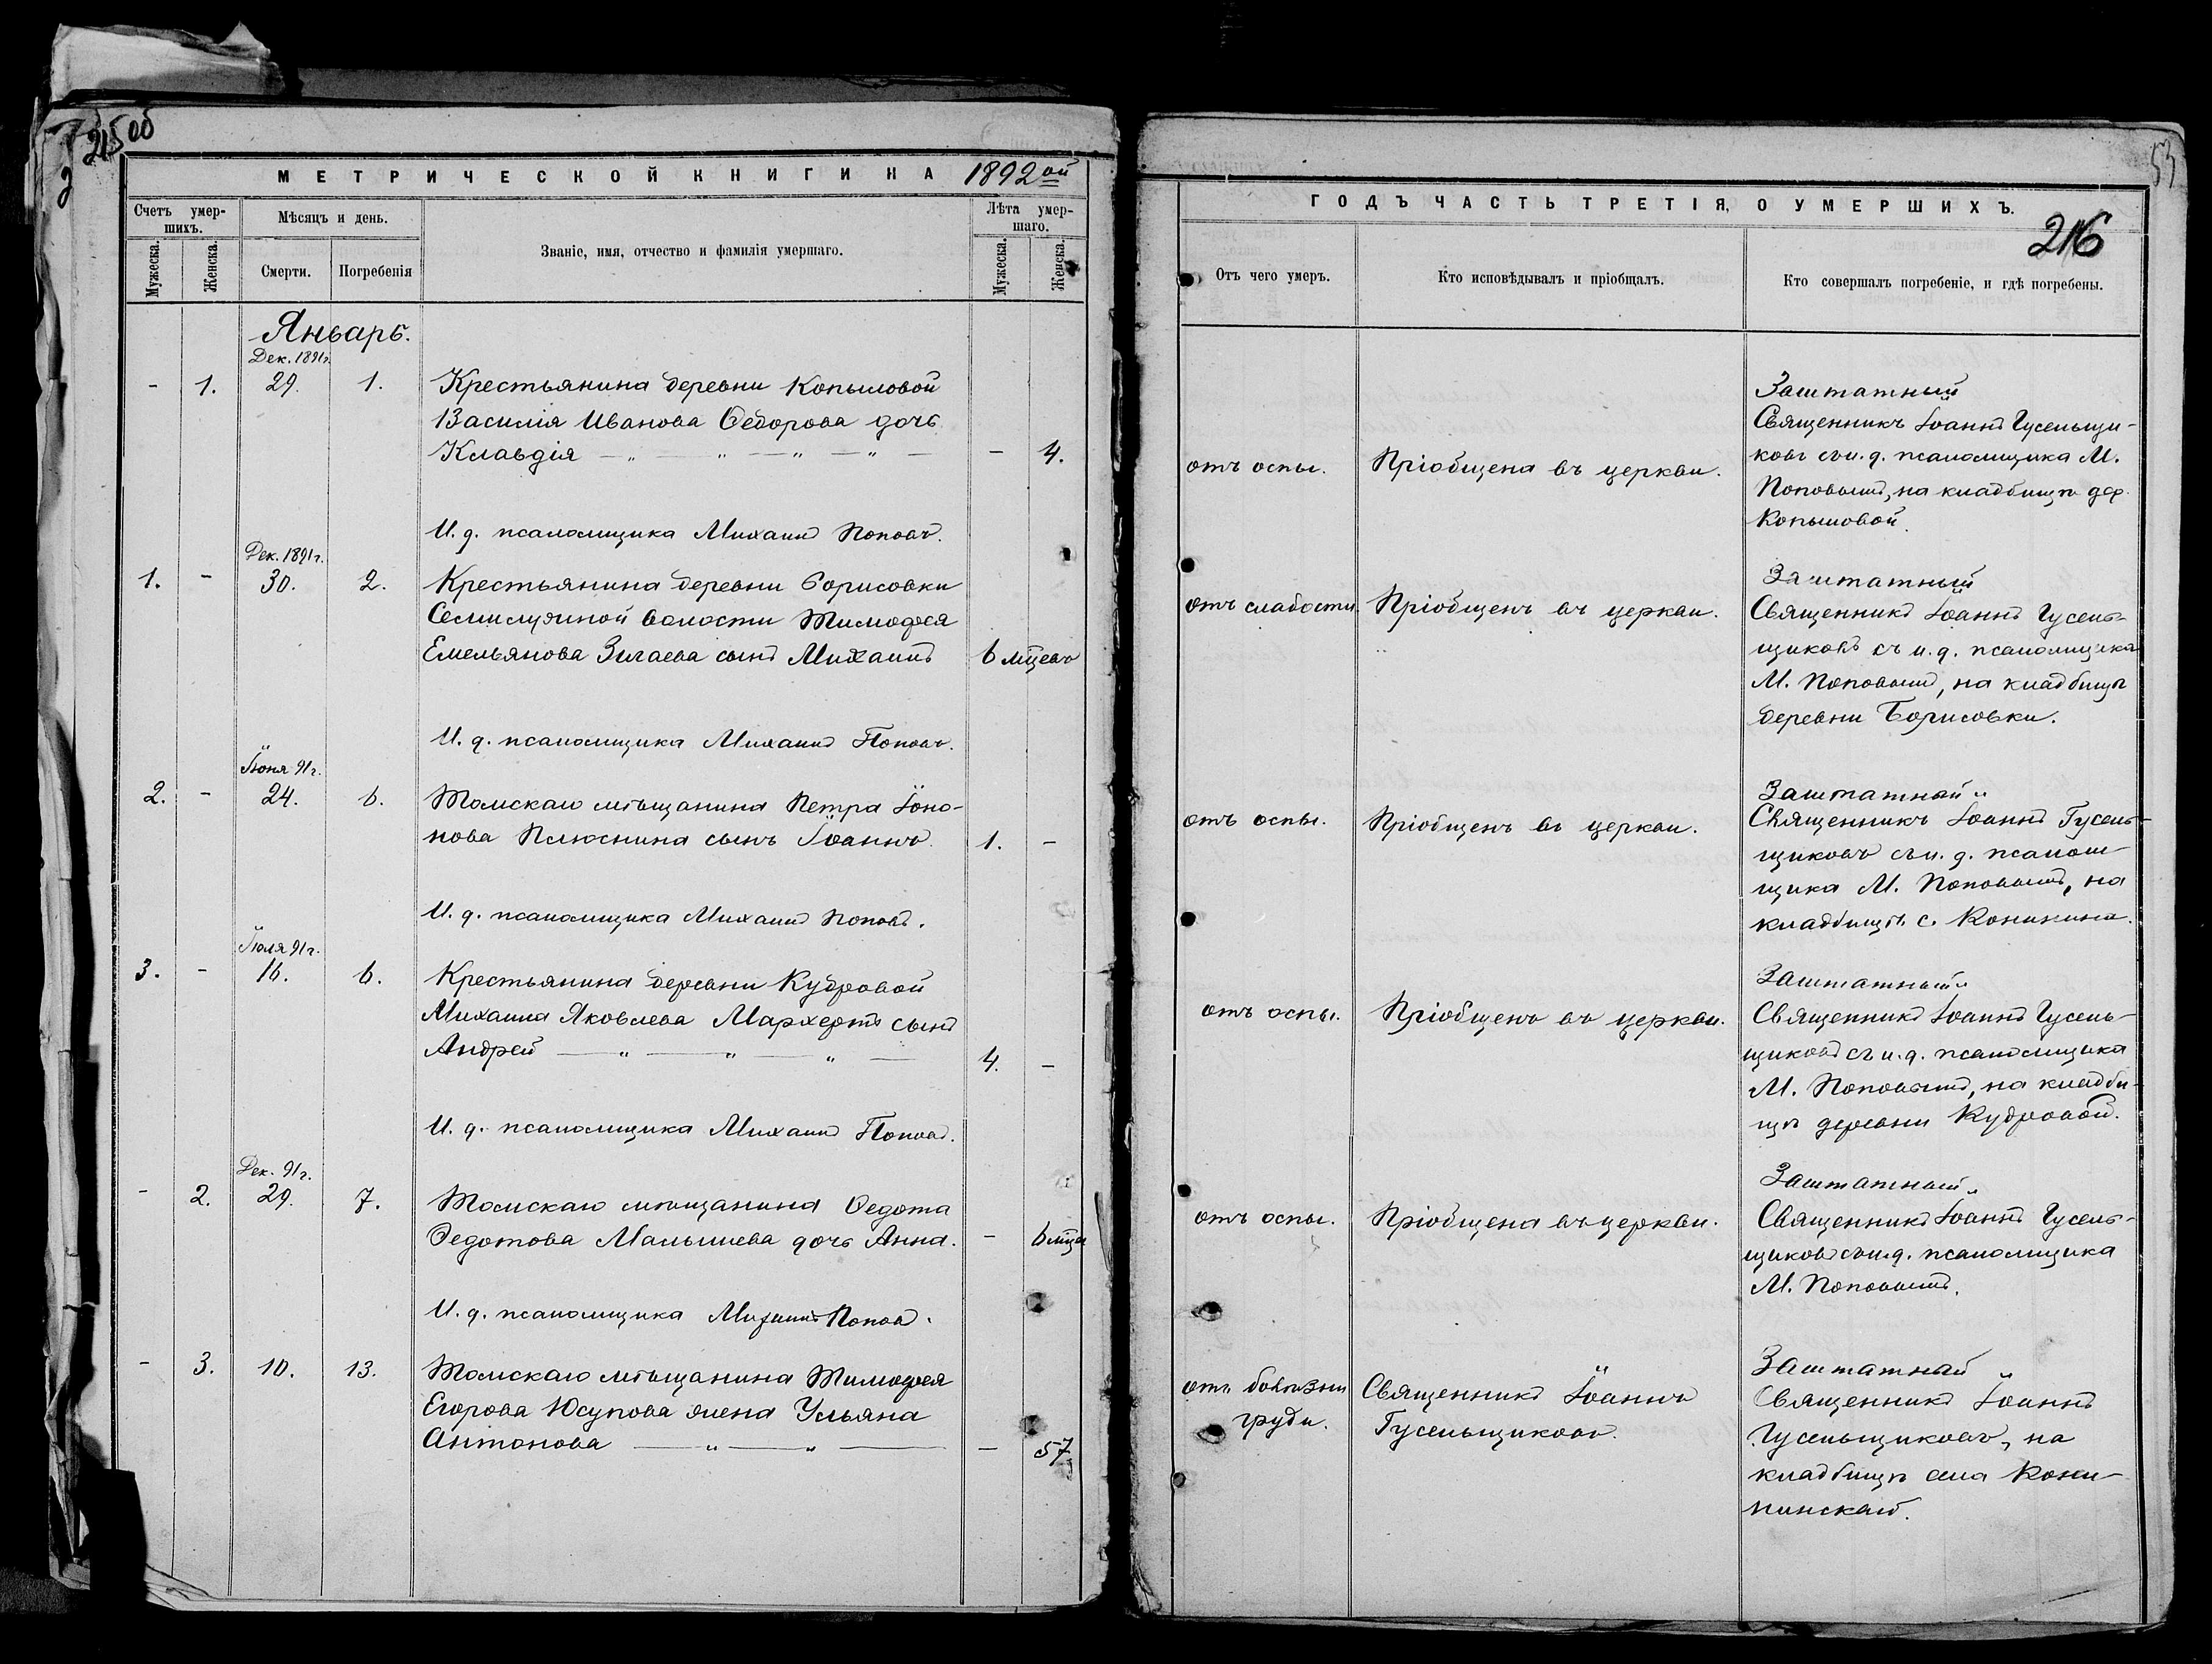 215 об
МЕТРИЧЕСКОЙ КНИГИ НА 1892ой
Счетъ умер-
шихъ.
Мѣсяцъ и день.
Званіе, имя, отчество и фамилія умершаго.
Лѣта умер-
шаго.
Мужеска.
Женска.
Смерти.
Погребенія
Мужеска.
Женска.
Январь.
Дек. 1891г.
- 1. 29. 1. Крестьянина деревни Копыловой
Василія Иванова Ѳедорова дочь
Клавдія — „ — „ — „ — „ — - 4.
И. д. псаломщика Михаилъ Поповъ.
Дек. 1891г.
1. - 30. 2. Крестьянина деревни Борисовки
Семилужной волости Тимоѳея
Емельянова Зигаева сынъ Михаилъ 6 мцевъ
И. д. псаломщика Михаилъ Поповъ.
Іюня 91г.
2. - 24. 6. Томскаго мѣщанина Петра Іоно-
нова Плюснина сынъ Іоаннъ 1. -
И. д. псаломщика Михаилъ Поповъ.
Іюля 91г.
3. - 16. 6. Крестьянина деревни Кудровой
Михаила Яковлева Мархертъ сынъ
Андрей — „ — „ — „ — 4. -
И. д. псаломщика Михаилъ Поповъ.
Дек. 91г.
- 2. 29. 7. Томскаго мѣщанина Ѳедота
Ѳедотова Малышева дочь Анна. - 6 мца
И. д. псаломщика Михаилъ Поповъ.
- 3. 10. 13. Томскаго мѣщанина Тимоѳея
Егорова Юсупова жена Ульяна
Антонова — „ — „ — - 57.
53
ГОДЪ ЧАСТЬ ТРЕТІЯ, О УМЕРШИХЪ.
216
Отъ чего умеръ.
Кто исповѣдывалъ и пріобщалъ.
Кто совершалъ погребеніе, и гдѣ погребены.
отъ оспы.
Пріобщена въ церкви.
Заштатный
Священникъ Іоаннъ Гусельщи-
ковъ съ и. д. псаломщика М.
Поповымъ, на кладбищѣ дер.
Копыловой.
отъ слабости.
Пріобщенъ въ церкви.
Заштатный
Священникъ Іоаннъ Гусель-
щиковъ съ и. д. псаломщика
М. Поповымъ, на кладбищѣ
деревни Борисовки.
отъ оспы.
Пріобщенъ въ церкви.
Заштатный
Священникъ Іоаннъ Гусель-
щиковъ съ и. д. псалом-
щика М. Поповымъ, на
кладбищѣ с. Конинина.
отъ оспы.
Пріобщенъ въ церкви.
Заштатный
Священникъ Іоаннъ Гусель-
щиковъ съ и. д. псаломщика
М. Поповымъ, на кладби-
щѣ деревни Кудровой.
отъ оспы.
Пріобщена въ церкви.
Заштатный
Священникъ Іоаннъ Гусель-
щиковъ съ и. д. псаломщика
М. Поповымъ.
отъ болѣзни
груди.
Священникъ Іоаннъ
Гусельщиковъ.
Заштатный
Священникъ Іоаннъ
Гусельщиковъ, на
кладбищѣ села Кони-
нинскаго.